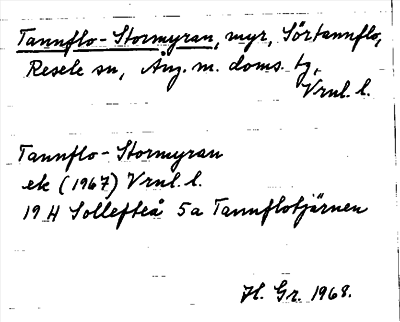 Tannflo-Stormyran, myr, Sörtannflo,
Resele sn, Ång. m. doms. tg,
Vrnl. l.
Tannflo-Stormyran
ek (1967) Vrnl. l.
19 H Sollefteå 5a Tannflotjärnen
H. Gr. 1968.